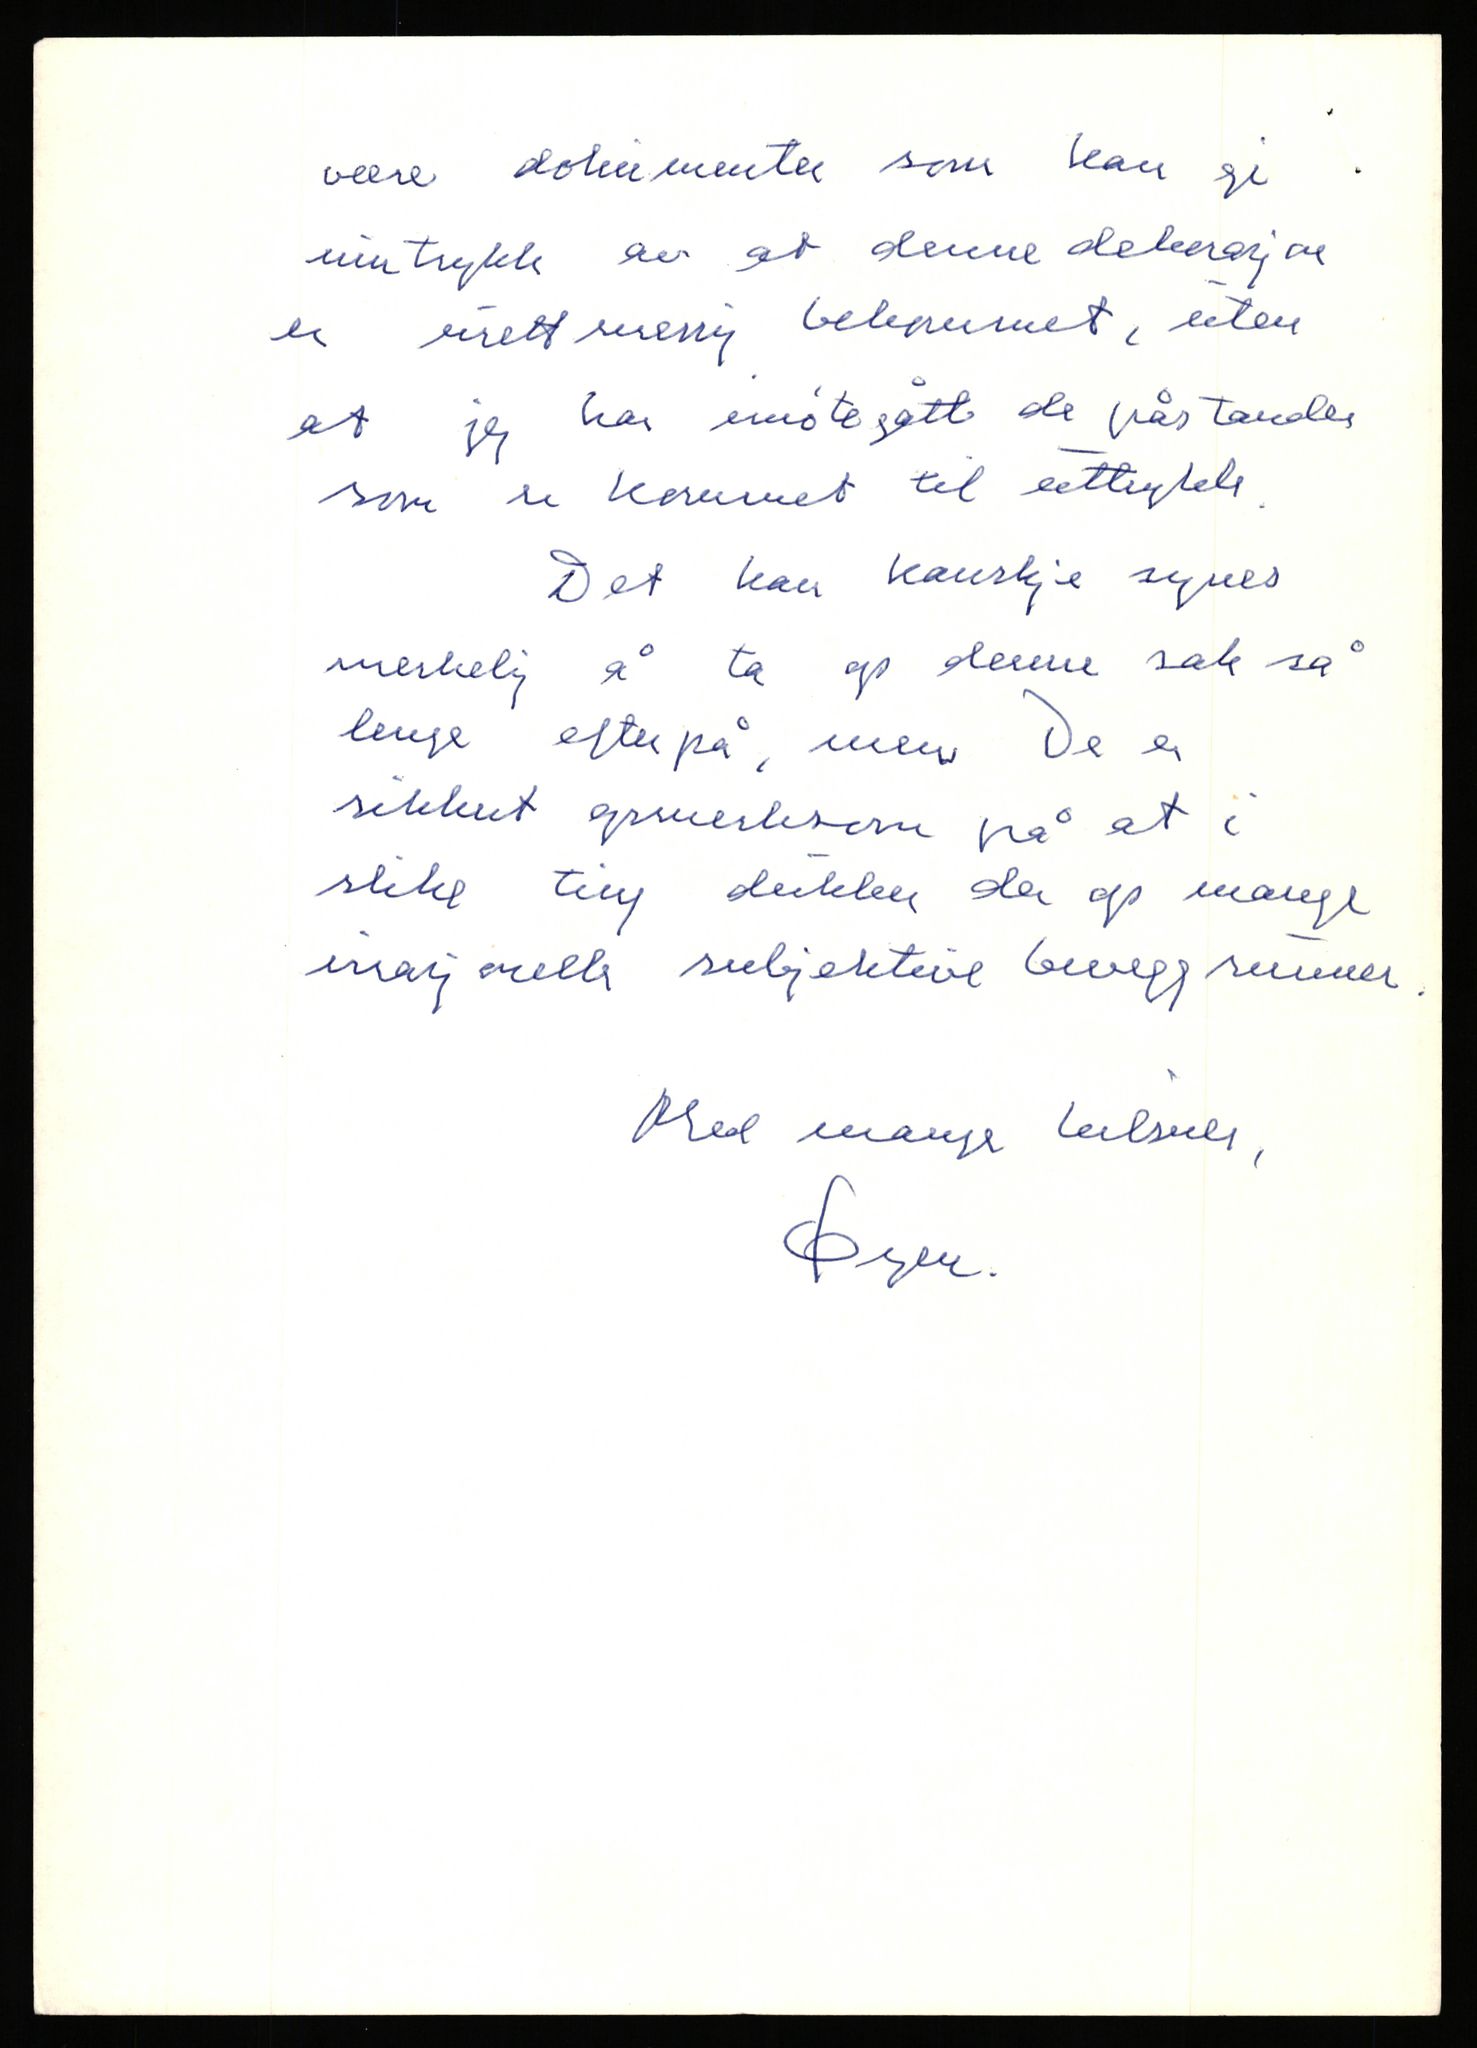 være dokumenter som kan gi
inntrykk av at denne dekorasjon
er urettmessig bekommet, uten
at jeg har imøtegått de påstander
som er kommet til uttrykk.
Det kan kanskje synes
merkelig å ta op denne sak så
lenge efterpå, men De er
sikkert opmerksom på at i
slike ting dukker der op mange
irrasjonelle subjektive beveggrunner.
Med mange hilsner,
Øyen.